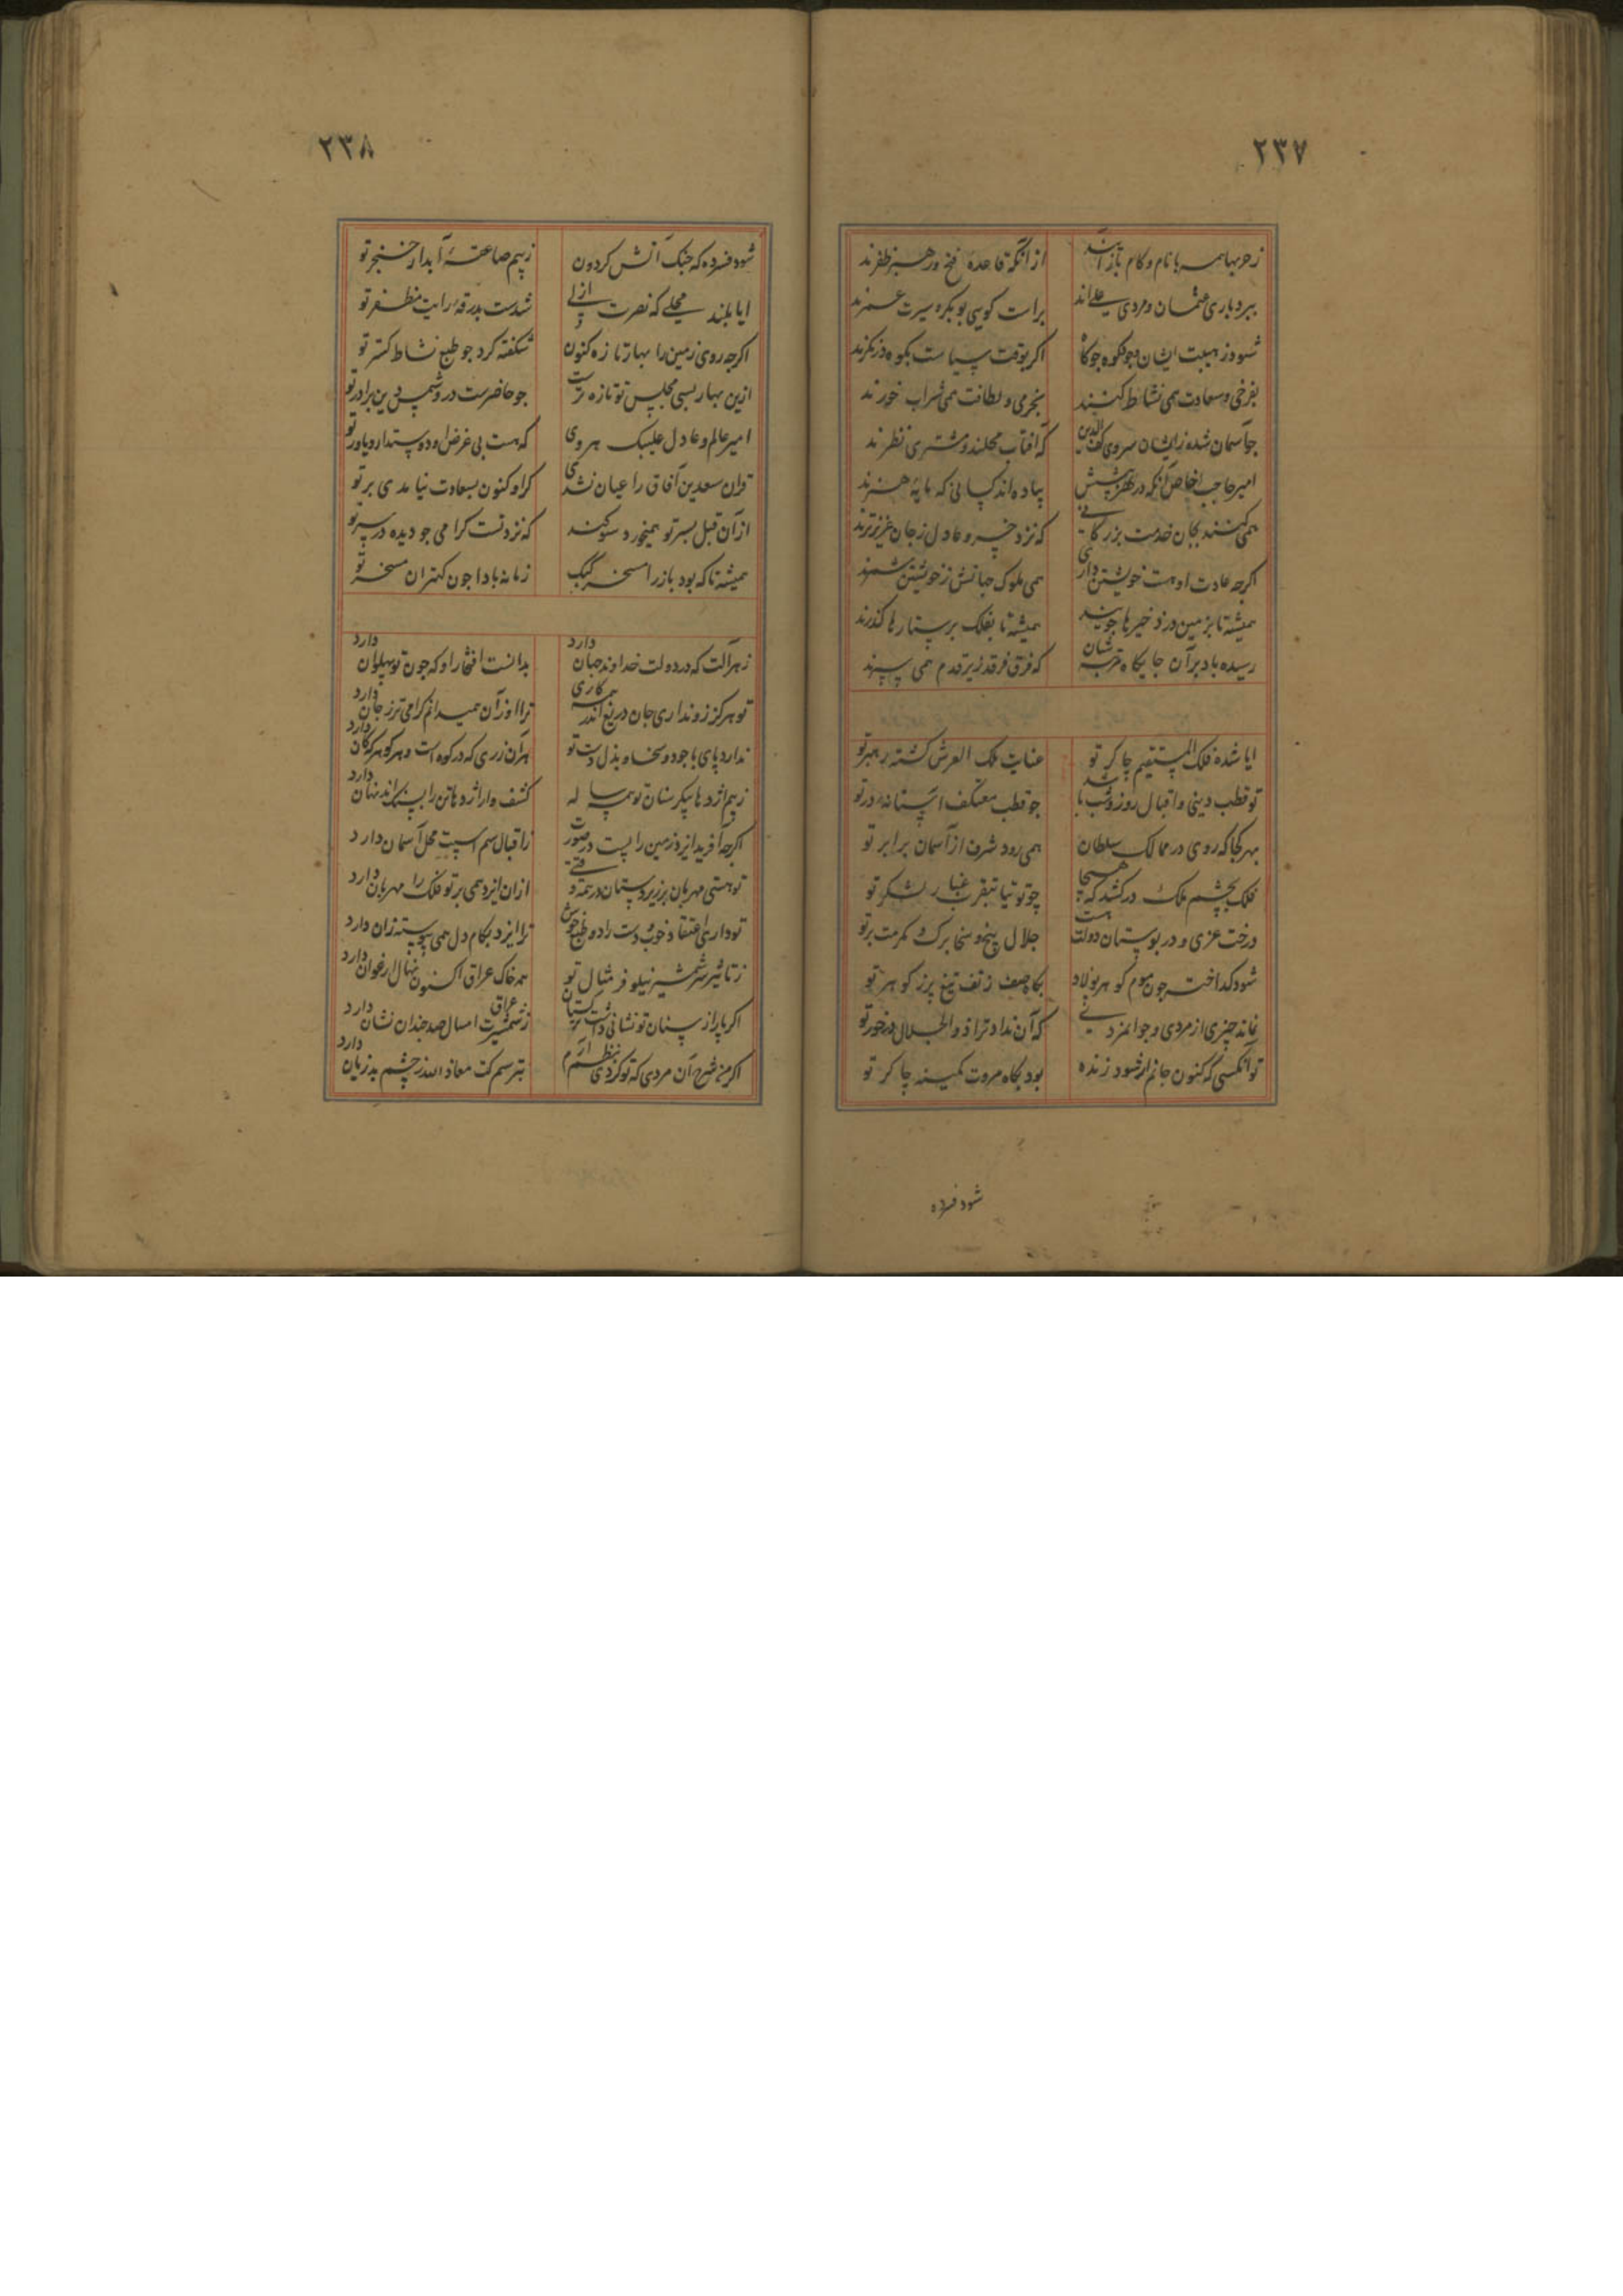 ۲۳۷
ز حربها همه با نام و کام باز آیند از آنکه قاعده فتح و رهبر ظفرند
ببردباری عثمان و مردی علی اند براست کویی بوبکر سیرت عمرند
شود ز هیبت ایشان چو کوه جو کاه اکر بوقت سیاست بکوه در نکرند
بفرخی و سعادت همی نشاط کنند بخرمی و لطافت همی شراب خورند
جو آسمان شده ز ایشان سروی کهف الدین که آفتاب محلند و مشتری نظرند
امیر حاجب الخاص آنکه در هنرش پیاده اند کسانی که مایه هنرند
همی کنند بجان خدمت بزرکانی که نزد خسرو عادل ز جان عزیزترند
اکرچه عادت او هست خویشتن داری همی ملوک جهانش ز خویشتن شمرند
همیشه تا بزمین در ذخیرها جویند همیشه تا بفلک بر ستارها کذرند
رسیده باد بر آن جایکاه مرتبه شان که فرق فرقد زیر قدم همی سپرند
ایا شده فلک المستقیم چاکر تو عنایت ملک العرش کشته رهبر تو
تو قطب دینی و اقبال روز و شب باشد جو قطب معتکف آستانه در تو
بهر کجا که روی در ممالک سلطان همی رود شرف از آسمان برابر تو
فلک بچشم ملک درکشد که هیجا چو توتیا بتقرب غبار لشکر تو
درخت عزی و در بوستان دولت هست جلال بیخ و سخا برک و مکرمت بر تو
شود کداخته جون موم کوهر پولاد بکاه صف ز تف تیغ پر ز کوهر تو
نماند چیزی از مردی و جوانمردی که آن نداد ترا ذو الجلال در خور تو
تو آنکسی که کنون حاتم ار شود زنده بود بکاه مروت کمینه چاکر تو
شود فسرده
۲۳۸
شود فسرده که جنک آتش کردون ز بیم صاعقهٔ آبدار خنجر تو
ایا بلند محلی که نصرت ازلی شدست بدرقهٔ رایت مظفر تو
اکرجه روی زمین را بهار تازه کنون شکفته کرد جو طبع نشاط کستر تو
ازین بهار بسی مجلس تو تازه ترست جو حاضرست درو شمس دین برادر تو
امیر عالم و عادل علیبک هروی که هست بی غرض او دوستدار و یاور تو
قران سعدین آفاق را عیان نشدی کر او کنون بسعادت نیامدی بر تو
از آن قبل بسر تو همیخورد سوکند که نزد تست کرامی جو دیده در سر تو
همیشه تا که بود باز را مسخر کبک زمانه بادا جون کهتران مسخر تو
ز هر آلت که در دولت خداوند جهان دارد بدانست افتخار او که چون تو پهلوان دارد
تو هرکز زو نداری جان دریغ اندر همه کاری ترا او زآن همیدانم کرامی تر ز جان دارد
ندارد پای با جود و سخا و بذل دست تو هر آن زری که در کوه است و هر کوهر که کان دارد
ز بیم اژدها پیکر سنان تو همه ساله کشف وار اژدها تن را بسنک اندر نهان دارد
اکرجه آفرید ایزد زمین را پست در صورت ز اقبال سم اسپت محل آسمان دارد
تو هستی مهربان بر زیر دستان در همه وقتی از آن ایزد همی بر تو فلک را مهربان دارد
تو داری اعتقاد خوب و دست راد و طبع خوش ترا ایزد بکام دل همی پیوسته زان دارد
ز تاثیر سر شمشیر نیلوفر مثال تو همه خاک عراق اکنون نهال ارغوان دارد
اکر پار از سنان تو نشانی داشت ترکستان ز شمشیرت امسال صد جندان نشان دارد عراق
اکر من شرح آن مردی که تو کردی بنظم آرم بترسم کت معاذ الله ز چشم بد زیان دارد